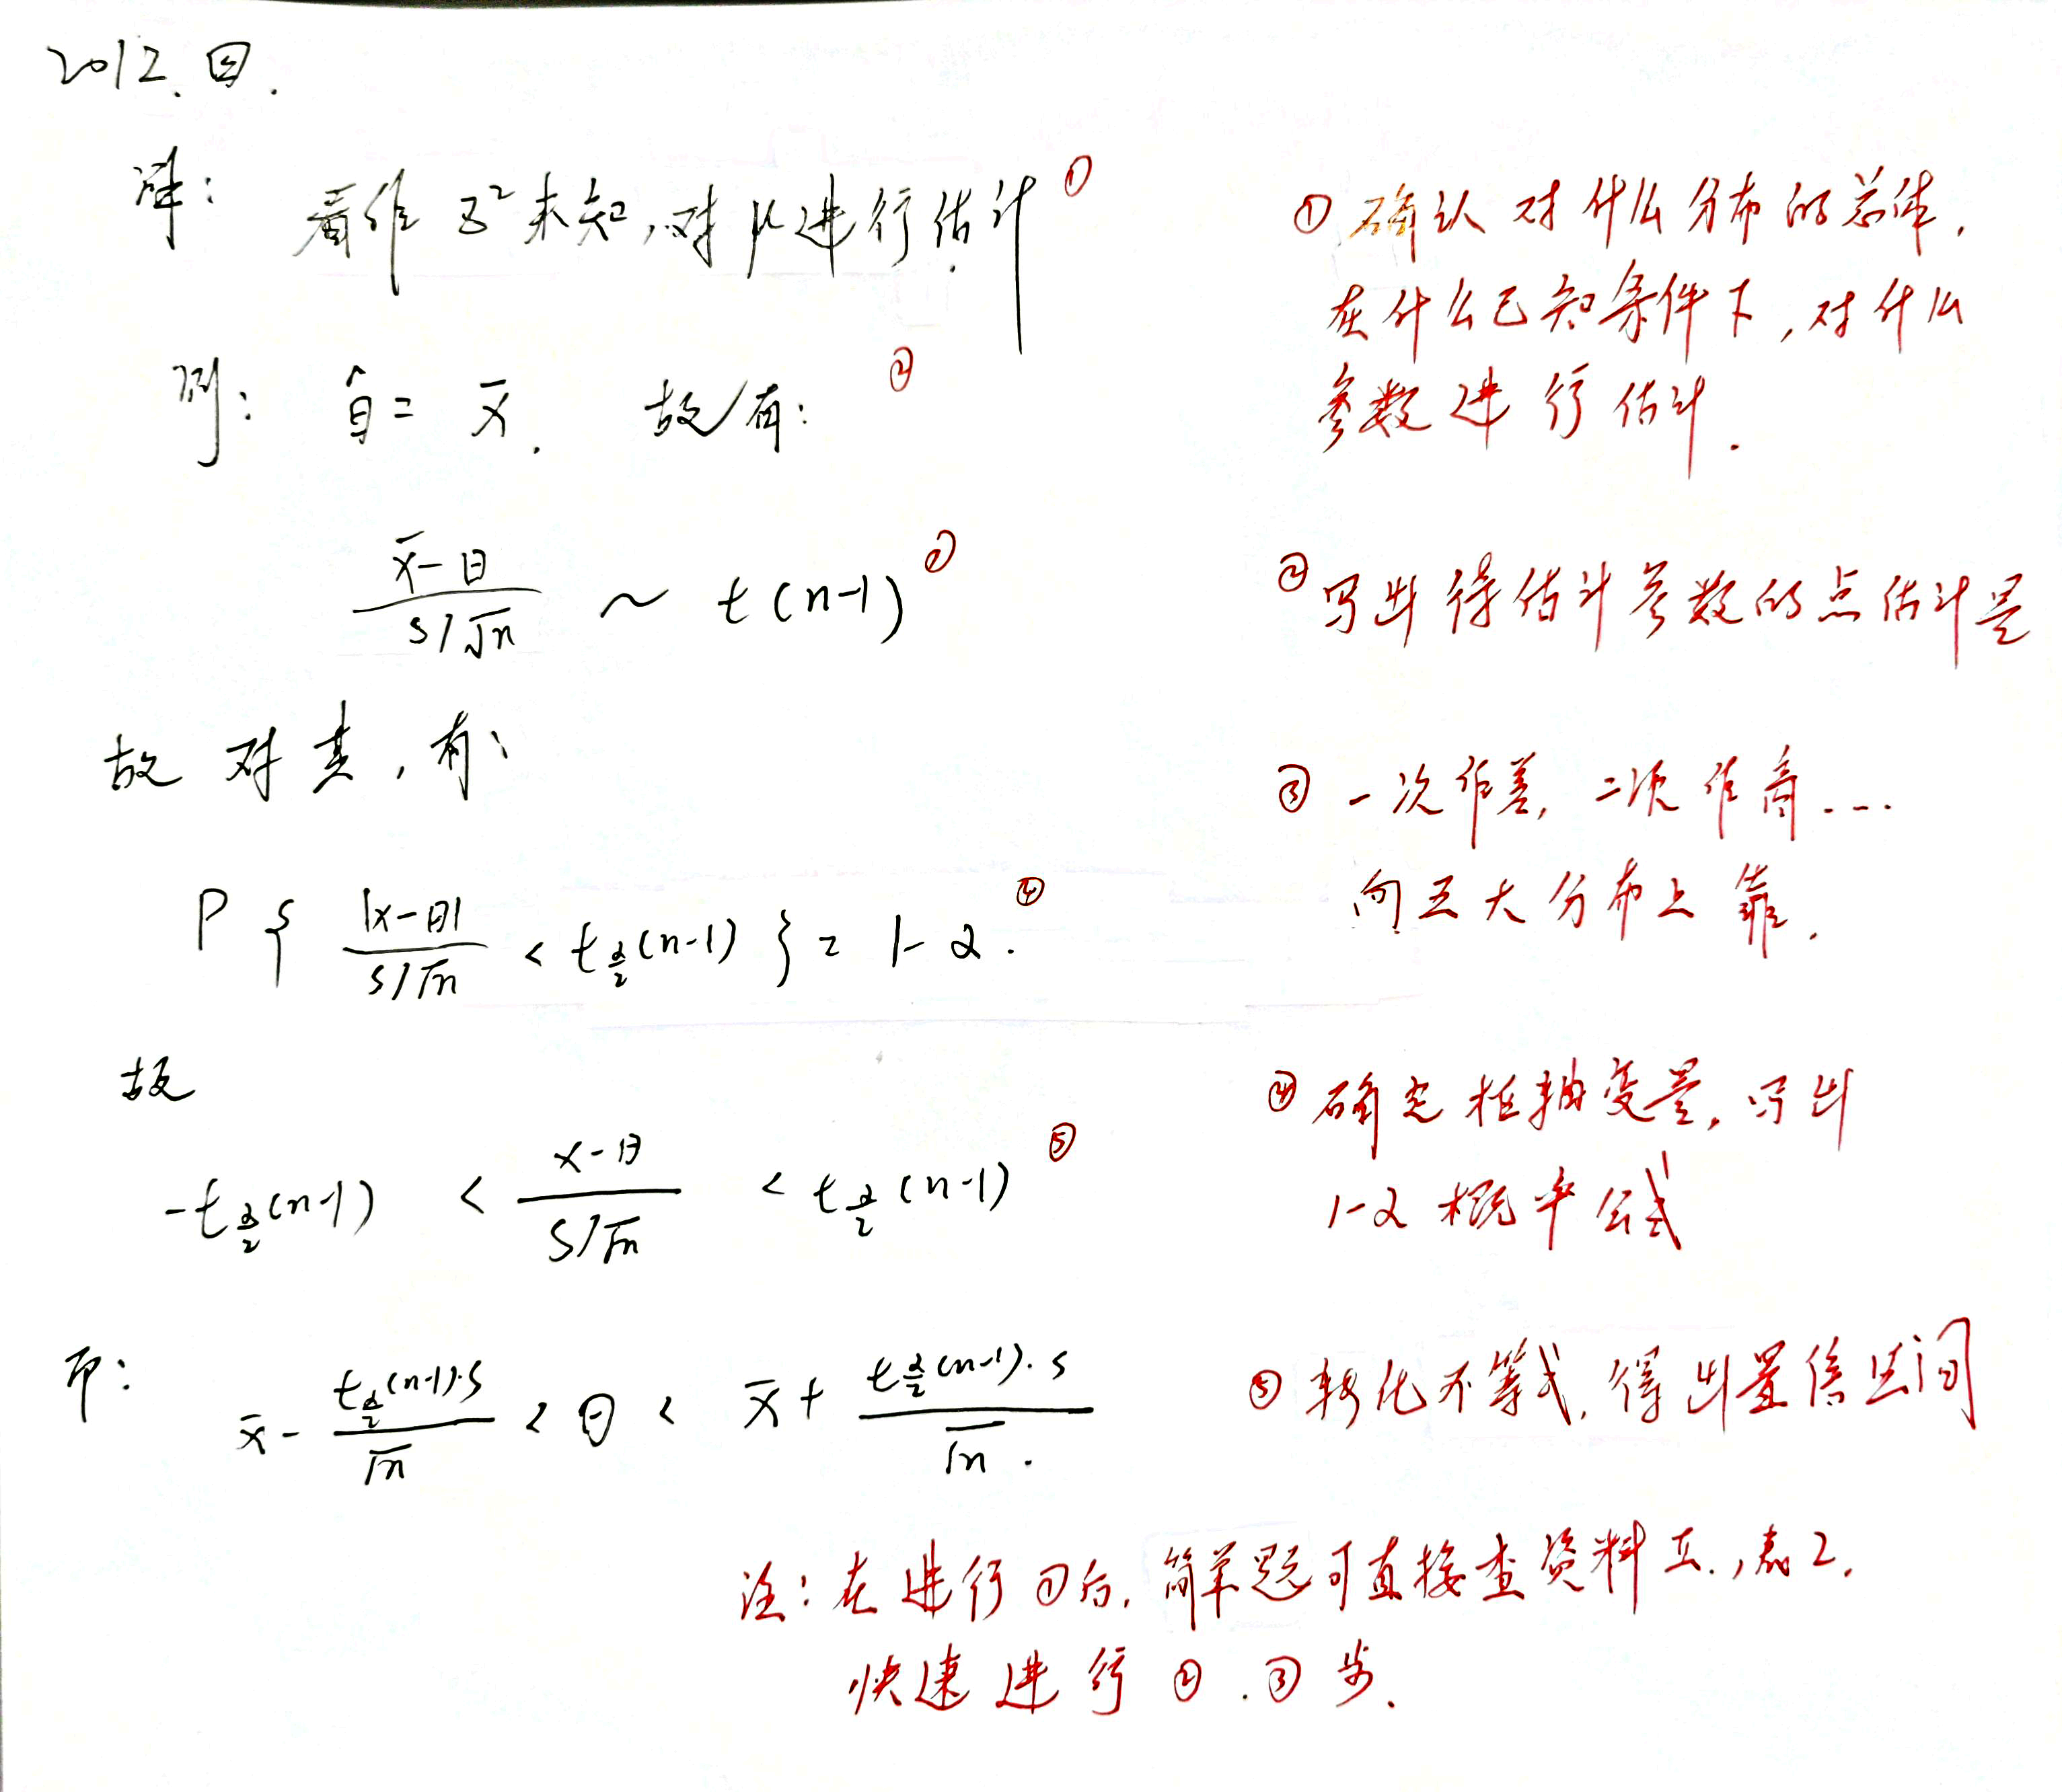 2012. 四.
解: 看作 σ² 未知, 对 μ 进行估计 ①
则: θ̂ = x̄. 故有: ②
(x̄ - θ)/(S/√n) ~ t(n-1) ③
故 对其, 有:
P { |x - θ|/(S/√n) < t_{α/2}(n-1) } = 1-α. ④
故
-t_{α/2}(n-1) < (x-θ)/(S/√n) < t_{α/2}(n-1) ⑤
即:
x̄ - t_{α/2}(n-1)·S/√n < θ < x̄ + t_{α/2}(n-1)·S/√n.
① 确认对什么分布的总体,
在什么已知条件下, 对什么
参数进行估计.
② 写出待估计参数的点估计量
③ 一次作差, 二次作商....
向五大分布上靠.
④ 确定枢轴变量, 写出
1-α 概率公式
⑤ 转化不等式, 得出置信区间
注: 在进行①后, 简单题可直接查资料五., 表2.
快速进行②.③步.